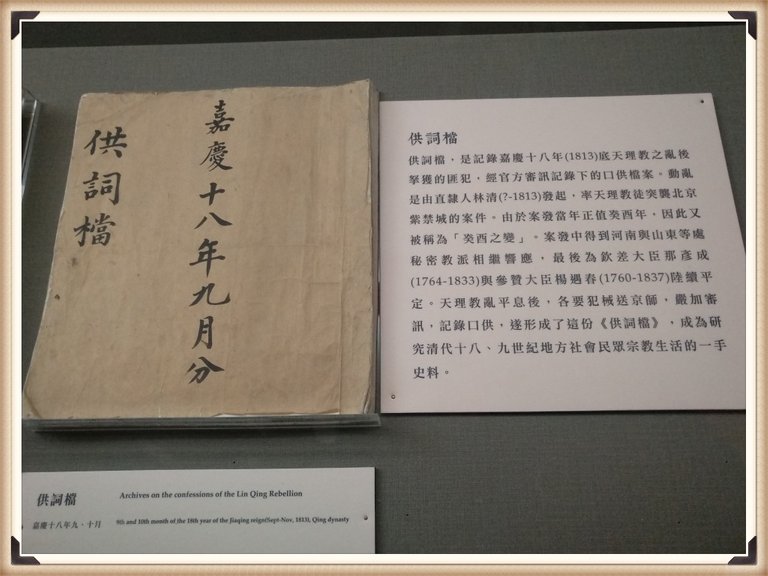 嘉慶十八年九月分
供詞檔
供詞檔
供詞檔，是記錄嘉慶十八年(1813)底天理教之亂後
拏獲的匪犯，經官方審訊記錄下的口供檔案。動亂
是由直隸人林清(?-1813)發起，率天理教徒突襲北京
紫禁城的案件。由於案發當年正值癸酉年，因此又
被稱為「癸酉之變」。案發中得到河南與山東等處
秘密教派相繼響應，最後為欽差大臣那彥成
(1764-1833)與參贊大臣楊遇春(1760-1837)陸續平
定。天理教亂平息後，各要犯械送京師，嚴加審
訊，記錄口供，遂形成了這份《供詞檔》，成為研
究清代十八、九世紀地方社會民眾宗教生活的一手
史料。
供詞檔
Archives on the confessions of the Lin Qing Rebellion
嘉慶十八年九、十月
9th and 10th month of the 18th year of the Jiaqing reign(Sept-Nov, 1813), Qing dynasty